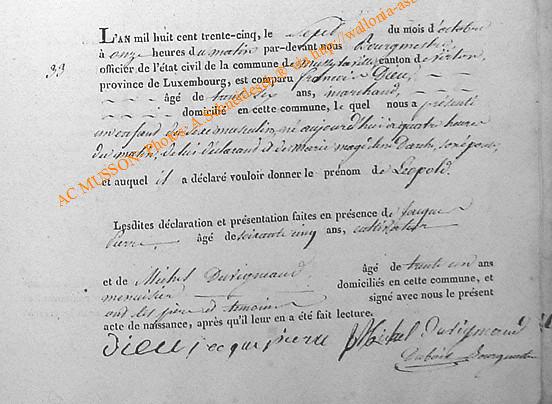 L'AN mil huit cent trente-cinq, le Sept du mois d'octobre
à onze heures du matin par-devant nous Bourgmestre
officier de l'état civil de la commune de canton de
33
province de Luxembourg, est comparu françois Dieu,
âgé de ans, marchand,
domicilié en cette commune, le quel nous a présenté
un enfant du sexe masculin, né aujourd'hui à quatre heures
du matin, de lui déclarant et de Marie son épouse
et auquel il a déclaré vouloir donner le prénom de Léopold.
Lesdites déclaration et présentation faites en présence de Jacque
Pierre âgé de soixante cinq ans, cultivateur
et de Michel Duvigneaud, âgé de trente ans
menuisier domiciliés en cette commune, et
ont les père et témoins signé avec nous le présent
acte de naissance, après qu'il leur en a été fait lecture.
Dieu jacque pierre Michel Duvigneaud
Dubois Bourgmestre
AC MUSSON. Photos: A. http://wallonia-as